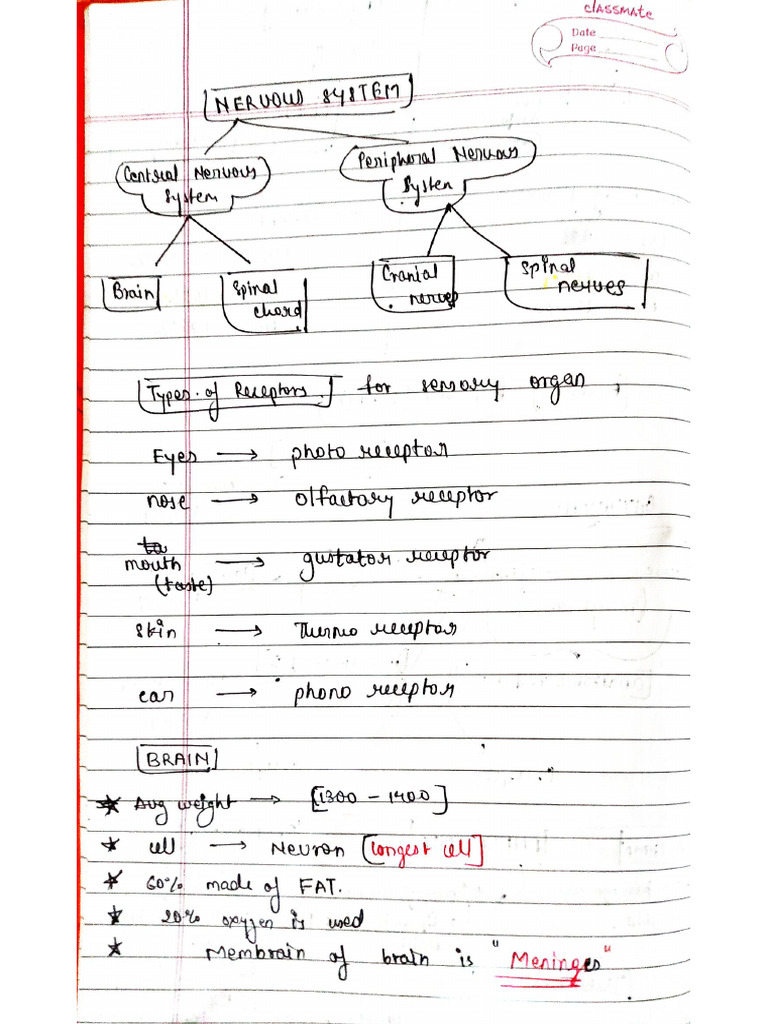 classmate
Date
Page
NERVOUS SYSTEM
Central Nervous System
Peripheral Nervous System
Brain
Spinal chord
Cranial nerves
Spinal nerves
Types of Receptors for sensory organ,
Eyes → photo receptor
nose → olfactory receptor
mouth (taste) → gustator receptor
skin → Thermo receptor
ear → phono receptor
BRAIN
★ Avg weight → [1300 - 1400]
★ cell → Neuron [longest cell]
★ 60% made of FAT.
★ 20% oxygen is used
★ Membrain of brain is "Meninges"